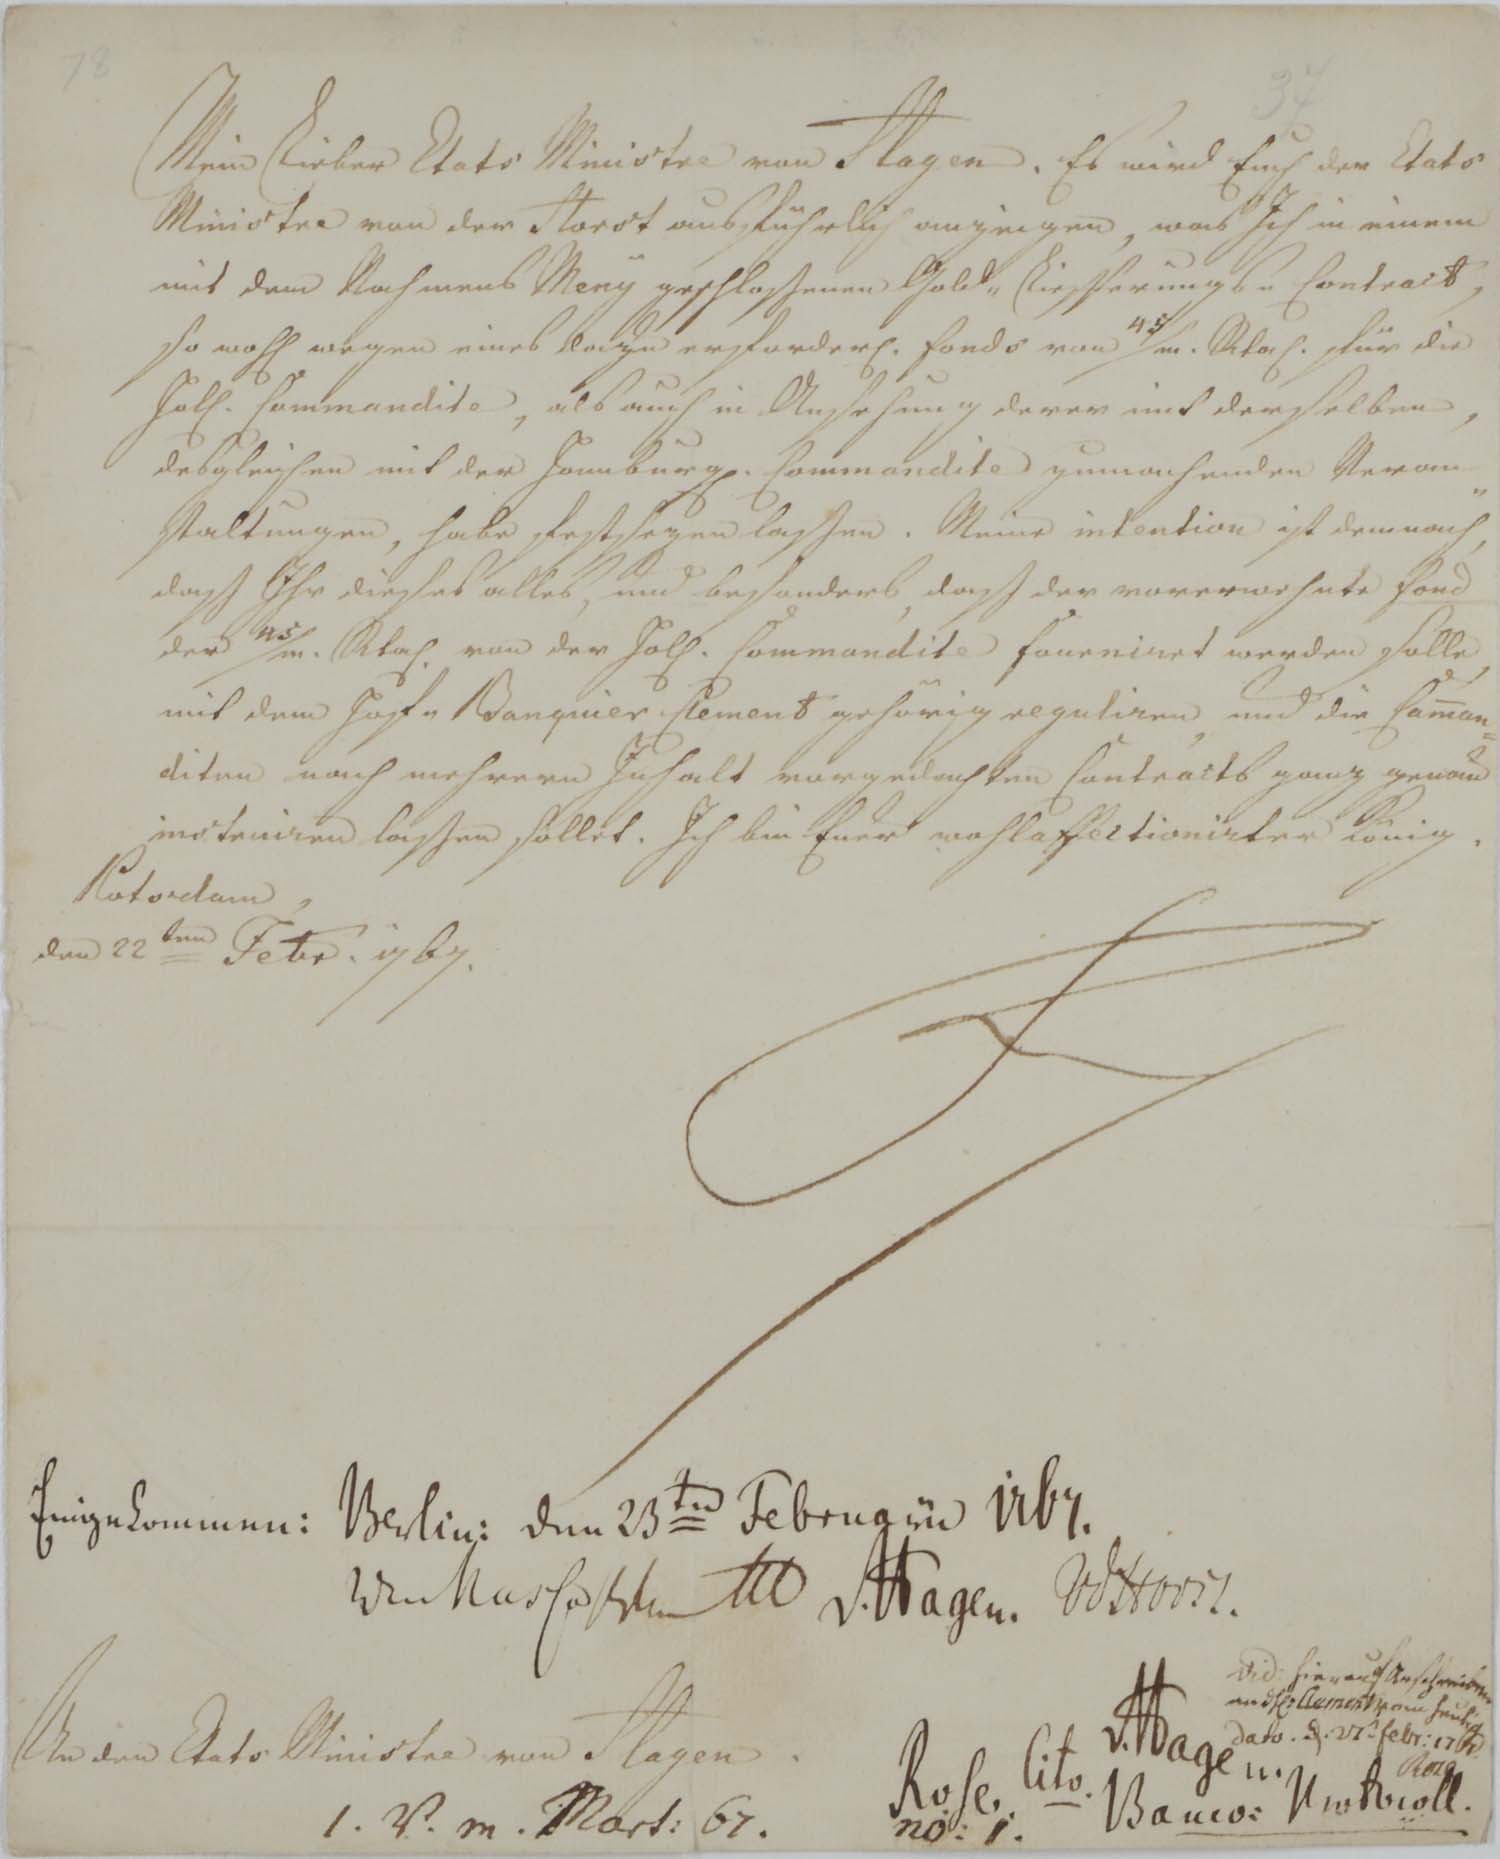 78
37
Mein Lieber Etats Ministre von Hagen. Es wird Euch der Etats
Ministre von der Horst ausführlich anzeigen, was Ich in einem
mit dem Nahmens Meny geschlossenen Gold-Liefferungs-Contract,
so wohl wegen eines dazu erforderl. Fonds von 45/m. Rthl. für die
Holl. Commandite, als auch in Ansehung derer mit derselben,
desgleichen mit der Hamburg. Commandite zumachenden Veran-
staltungen, habe festsezen lassen. Meine intention ist demnach,
dass Ihr dieses alles, und besonders, dass der vorerwehnte Fond
der 45/m. Rthl. von der Holl. Commandite fourniret werden solle,
mit dem Hoff-Banquier Clement gehörig reguliren, und die Comman-
diten nach mehrern Inhalt vorgedachten Contracts ganz genau
instruiren lassen sollet. Ich bin Euer wohlaffectionirter König.
Potsdam,
den 22ten Febr. 1767.
Eingekommen: Berlin: den 23ten Februarii 1767.
v. Hagen. VdHorst.
An den Etats Ministre von Hagen.
1. V. m. Mart: 67.
Vid: hierauf Anschreiben
an H. Clement vom heut.
dato. d. febr: 1767
Rose
v. Hagen.
Rose. Cito. Banco:
no: 1.